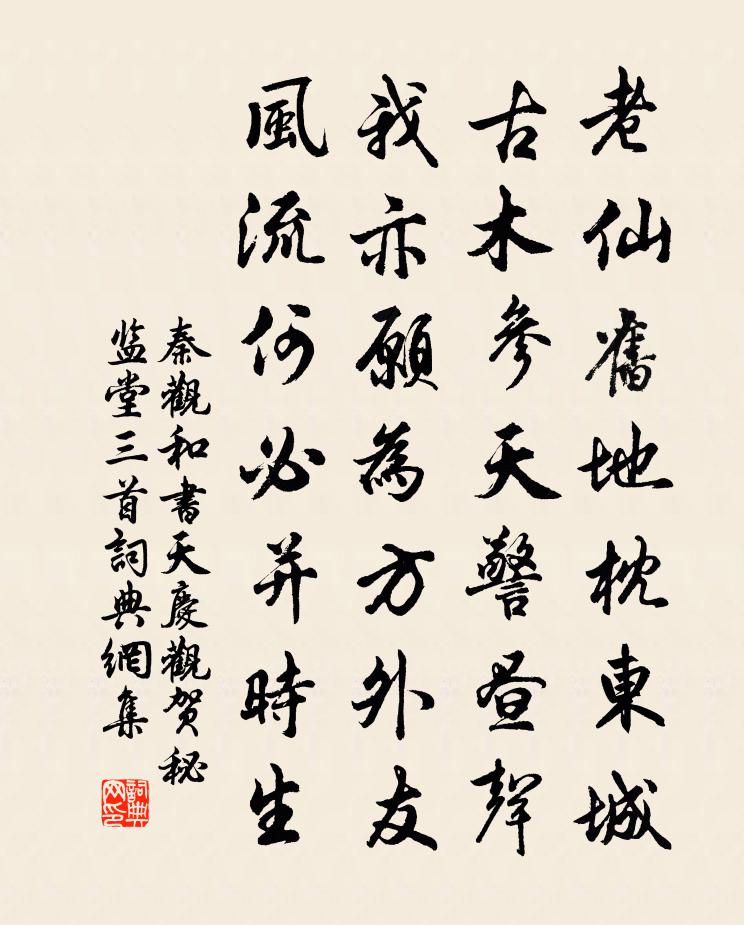 老仙舊地枕東城
古木參天警昼聲
我亦願為方外友
風流何必并時生
秦觀和書天慶觀賀秘
监堂三首詞典網集
詞典
网印